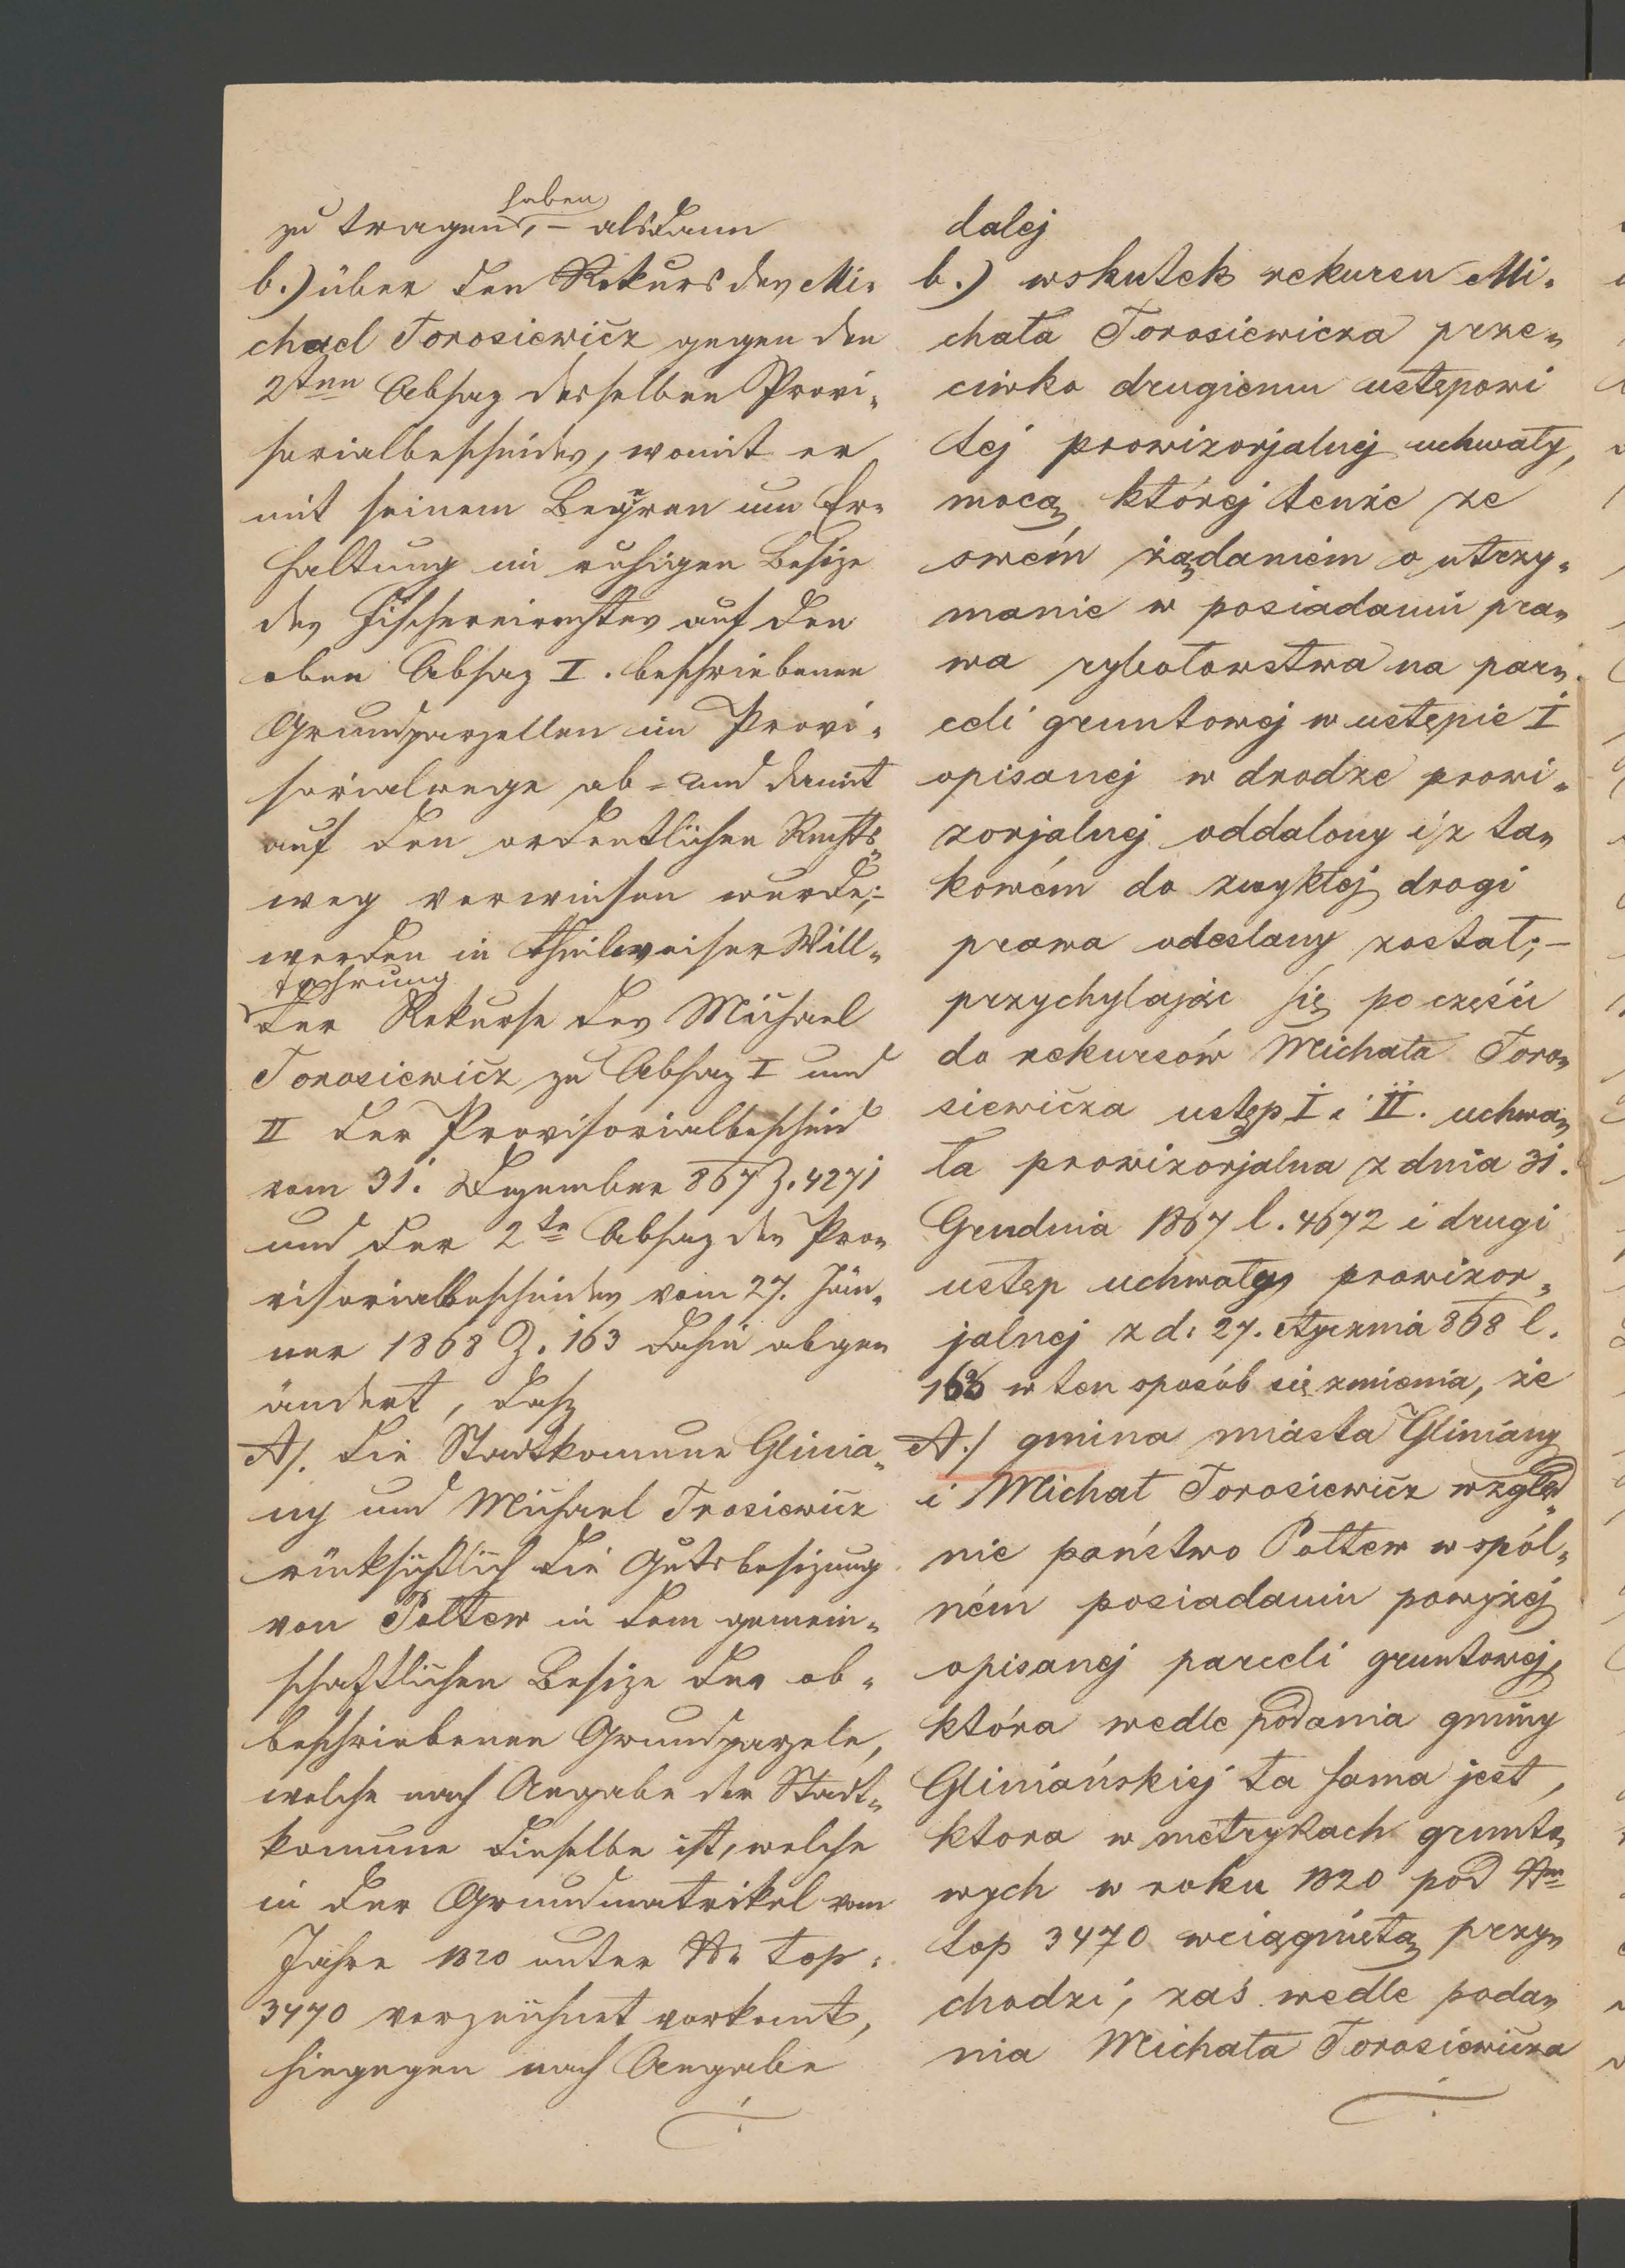 zu tragen haben, – alsdann
b.) über den Rekurs des Mi-
chael Torosiewicz gegen den
2ten Absaz desselben Provi-
sorialbescheides, womit er
mit seinem Begehren um Er-
haltung im ruhigen Besize
des Fischereirechtes auf den
oben Absaz I. beschriebenen
Grundparzellen im Provi-
sorialwege ab- und damit
auf den ordentlichen Rechts-
weg verwiesen wurde; –
werden in theilweiser Will-
fahrung
der Rekurse des Michael
Torosiewicz zu Absaz I und
II der Provisorialbescheid
vom 31. Dezember 867 Z. 4271
und der 2te Absaz des Pro-
visorialbescheides vom 27. Jän-
ner 1868 Z. 163 dahin abge-
ändert, daß
A/. die Stadtkomune Glinia-
ny und Michael Trosiewicz
rücksichtlich die Gutsbesizung
von Poltew in dem gemein-
schaftlichen Besize der ob-
beschriebenen Grundparzele,
welche nach Angabe der Stadt-
komune dieselbe ist, welche
in der Grundmatrikel vom
Jahre 1820 unter Nr top.
3470 verzeichnet vorkomt,
hingegen nach Angabe
dalej
b.) wskutek rekursu Mi-
chała Torosiewicza prze-
ciwko drugiemu ustępowi
tej prowizorjalnej uchwały,
mocą której tenże ze
swém żądaniem o utrzy-
manie w posiadaniu pra-
wa rybołowstwa na par-
celi gruntowej w ustępie I
opisanej w drodze prowi-
zorjalnej oddalony i z ta-
kowém do zwykłej drogi
prawa odesłany został; –
przychylając się po części
do rekursów Michała Toro-
siewicza ustęp I i II. uchwa-
ła prowizorjalna z dnia 31.
Grudnia 1867 l. 4672 i drugi
ustęp uchwały prowizor-
jalnej z d. 27. stycznia 868 l.
163 w ten sposób się zmienia, że
A./ gmina miasta Gliniany
i Michał Torosiewicz wzglę-
nie państwo Połtew w spól-
ném posiadaniu powyżej
opisanej parceli gruntowej,
która wedle podania gminy
Gliniańskiej ta sama jest,
ktora w metrykach grunto-
wych w roku 1820 pod Nr
top 3470 wciągnięta przy-
chodzi, zaś wedle poda-
nia Michała Torosiewicza